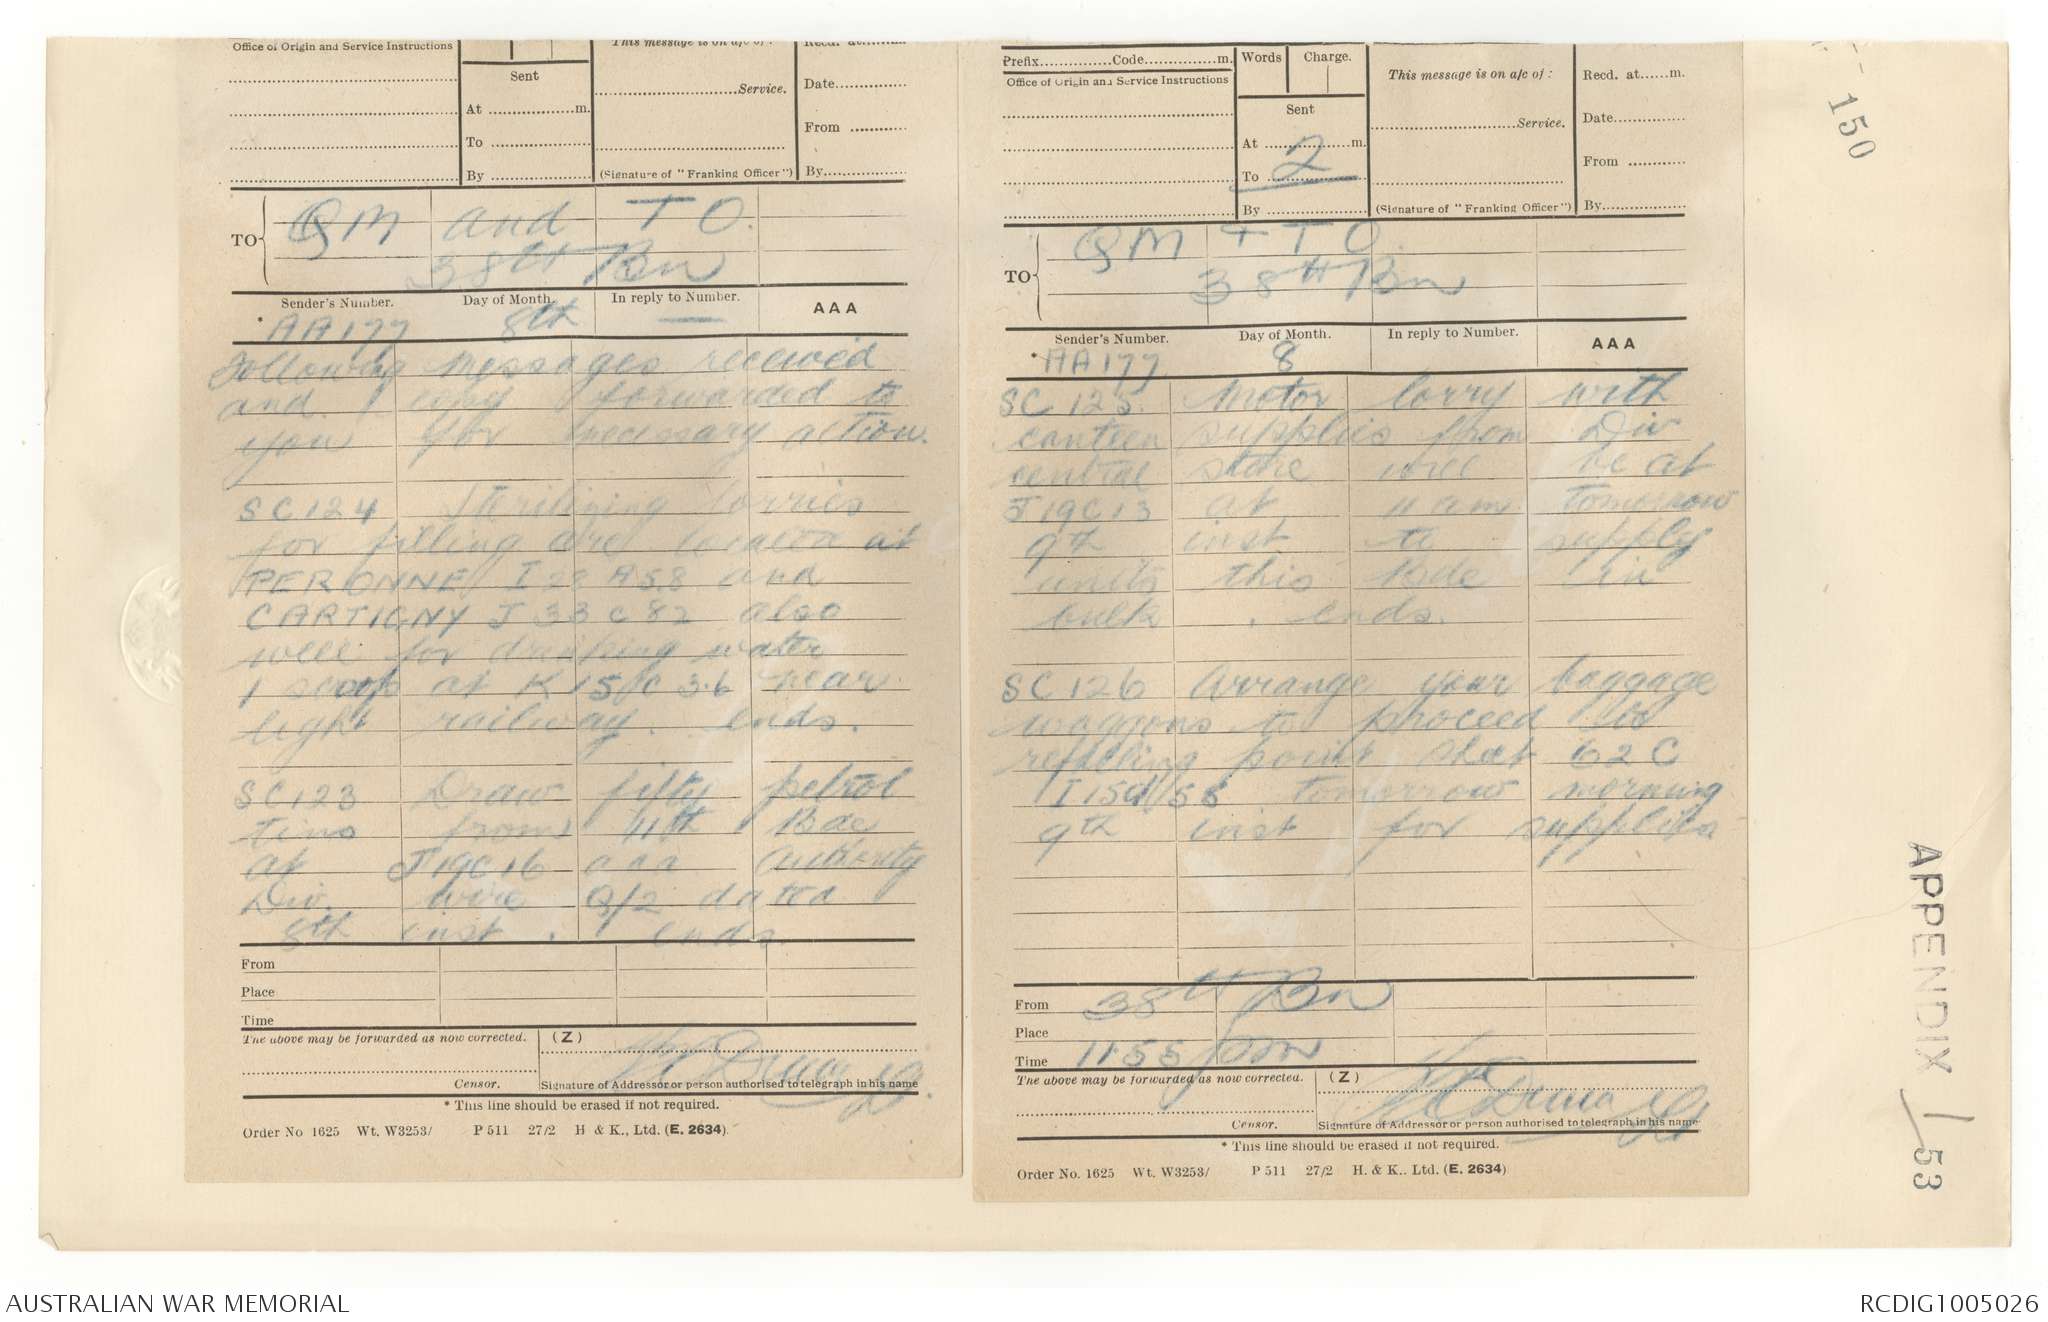 Office of Origin and Service Instructions
Sent
At ................m.
To
By
This message is on a/c of :
Service.
(Signature of "Franking Officer")
Recd. at
Date
From
By
TO
QM and TO.
38th Bn
Sender's Number.
Day of Month.
In reply to Number.
AAA
* AA177
8th
—
Following messages received
and copy forwarded to
you for necessary action.
SC124 Sterilizing lorries
for filling are located at
PERONNE I 22 A 5.8 and
CARTIGNY J 33 C 82 also
well for drinking water
at K 15 C 3.6 near
light railway. ends.
SC123 Draw fifty petrol
tins from 11th Bde
at J19C16 aaa authority
Div. wire Q/2 dated
8th inst. ends.
From
Place
Time
The above may be forwarded as now corrected.
(Z)
Censor.
Signature of Addressor or person authorised to telegraph in his name
* This line should be erased if not required.
Order No 1625 Wt. W3253/ P 511 27/2 H & K., Ltd. (E. 2634)
Prefix...............Code...............m.
Words
Charge.
Office of Origin and Service Instructions
Sent
At ................m.
To
By
2
This message is on a/c of :
Service.
(Signature of "Franking Officer")
Recd. at......m.
Date
From
By
TO
QM + TO.
38th Bn
Sender's Number.
Day of Month.
In reply to Number.
AAA
* AA177
8
SC 125. Motor lorry with
canteen supplies from Div
central store will be at
J19C13 at 11 am tomorrow
9th inst to supply
units this Bde in
bulk. ends.
SC126 Arrange your baggage
waggons to proceed to
refilling point 62C
tomorrow morning
9th inst for supplies
From 38th Bn
Place
Time 11.55 pm
The above may be forwarded as now corrected.
(Z)
Censor.
Signature of Addressor or person authorised to telegraph in his name
* This line should be erased if not required.
Order No. 1625 Wt. W3253/ P 511 27/2 H. & K.. Ltd. (E. 2634)
150
APPENDIX / 53
AUSTRALIAN WAR MEMORIAL
RCDIG1005026